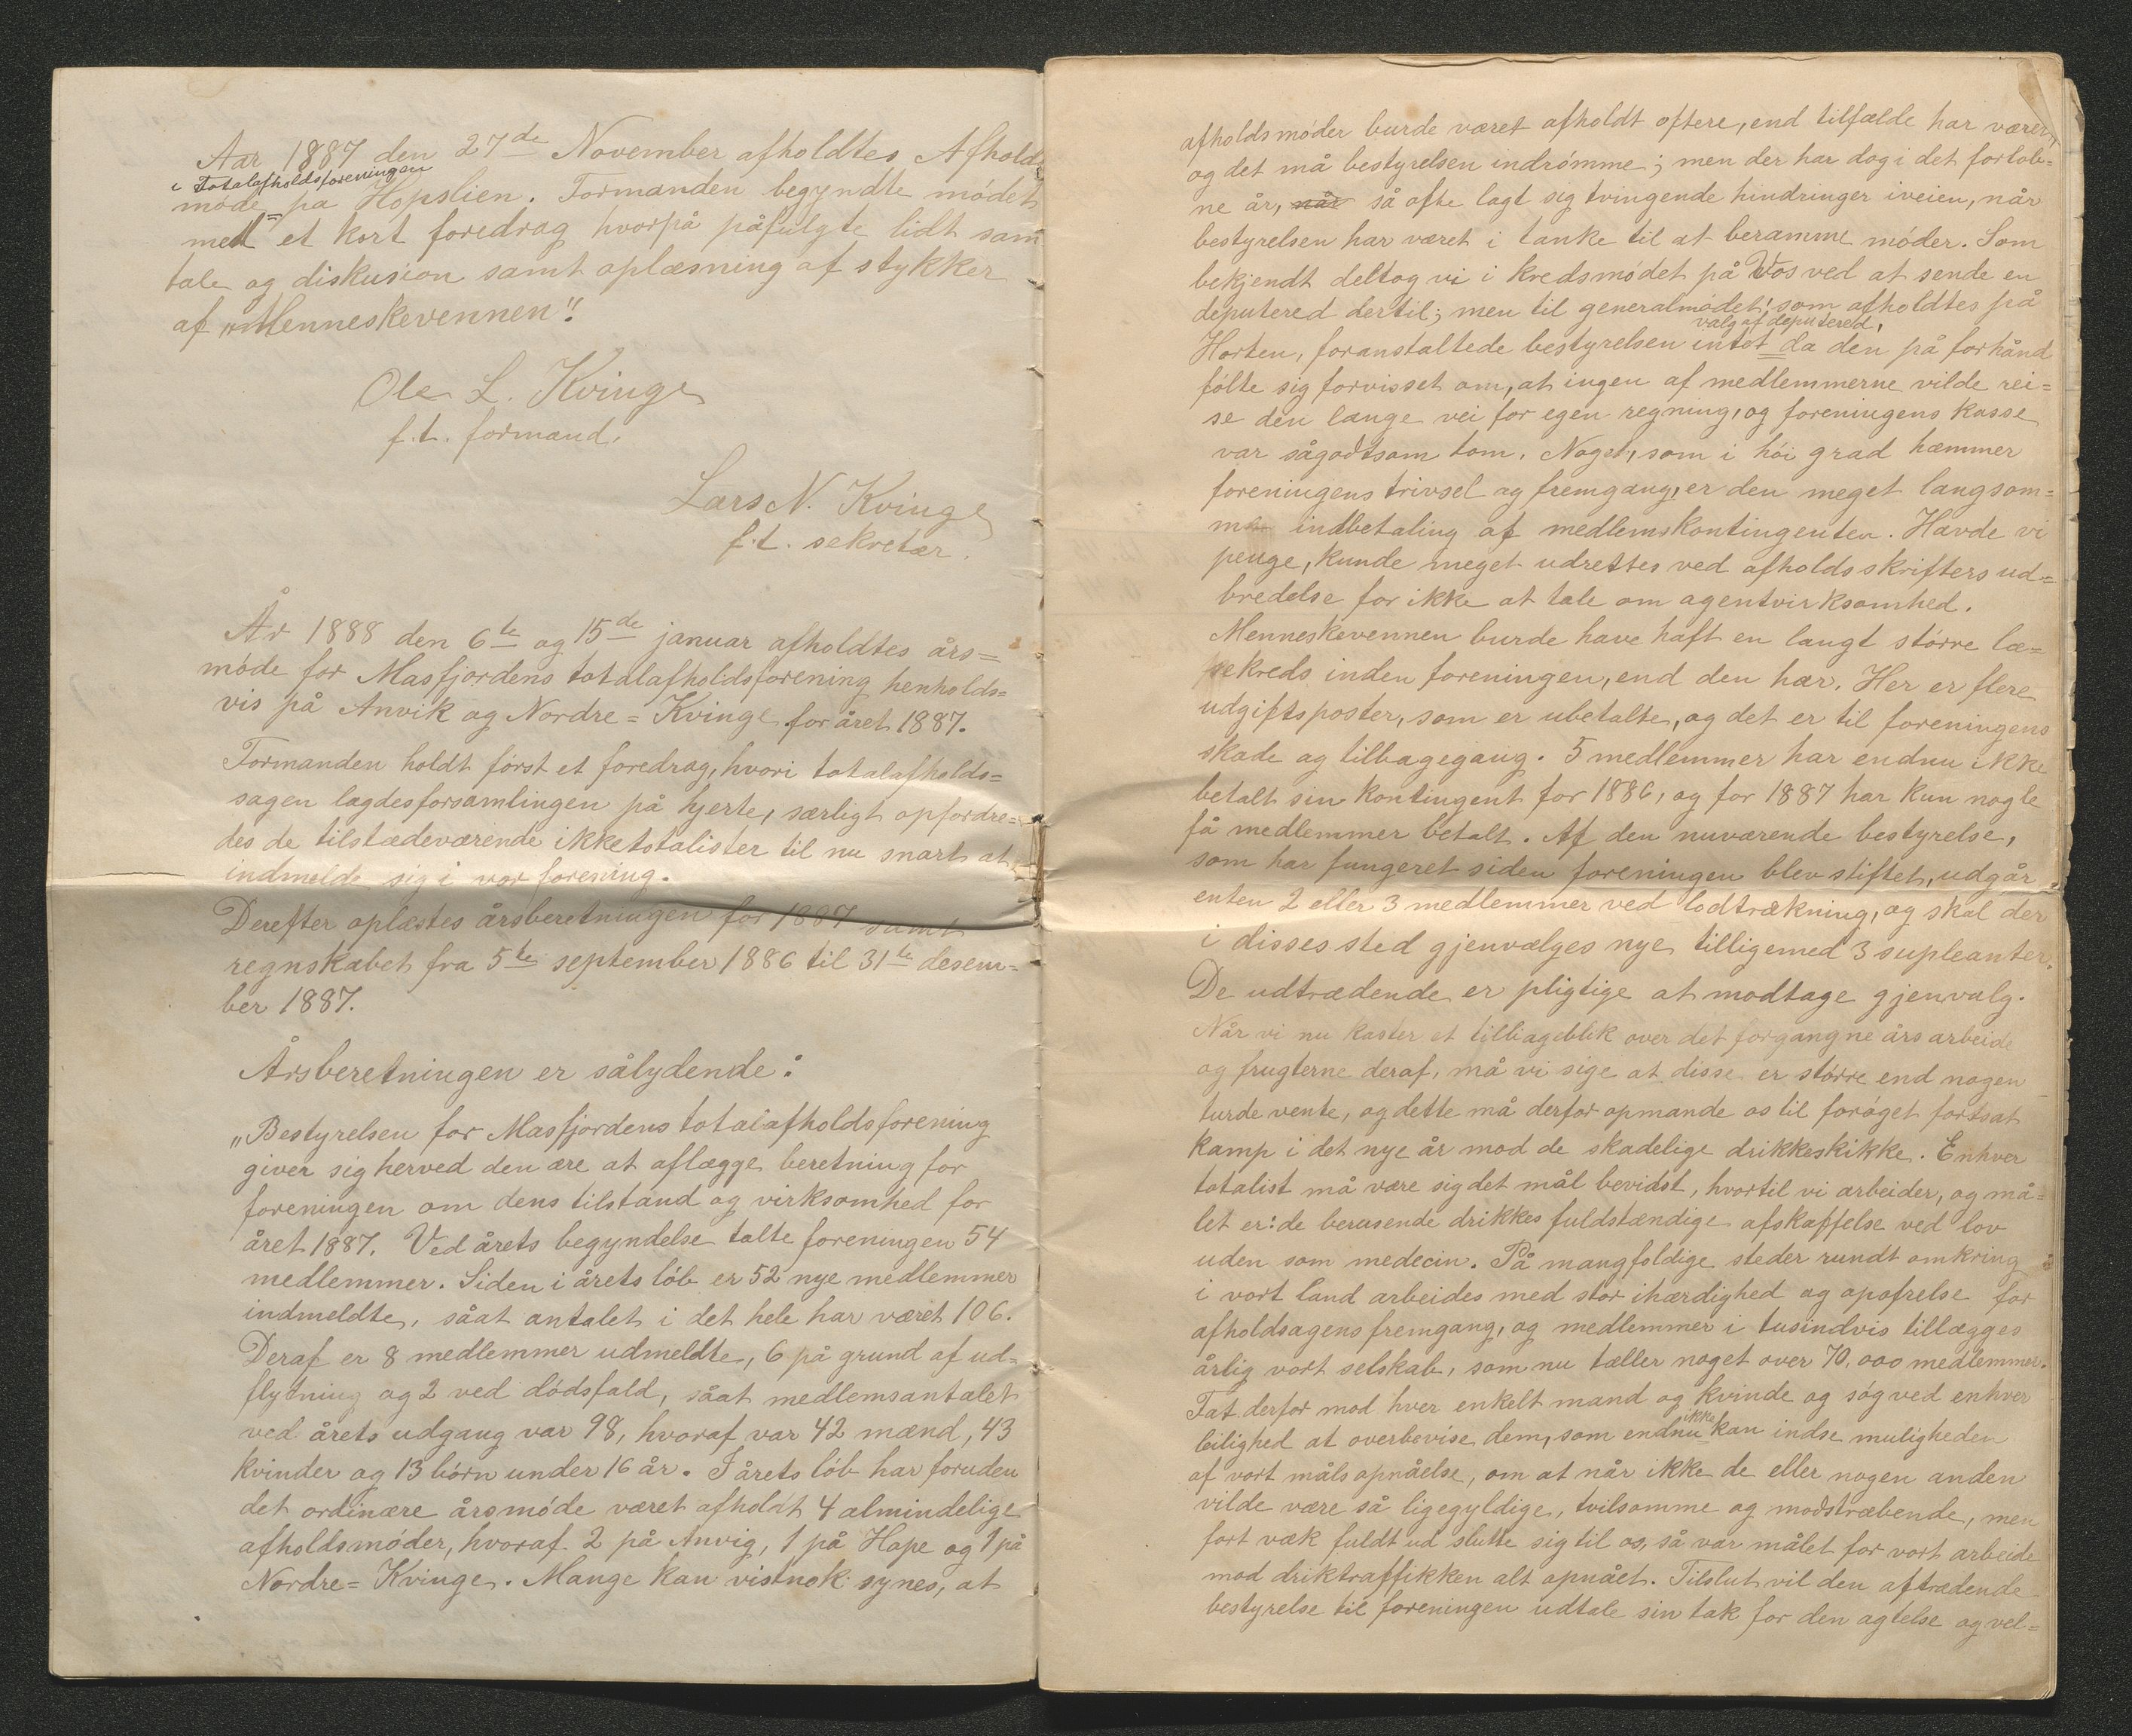 Aar 1887 den 27de November afholdtes Afholds
i Totalafholdsforeningen
møde på Hopslien. Formanden begyndte mødet
med et kort foredrag hvorpå påfulgte lidt sam
tale og diskusion samt oplæsning af stykker
af „Menneskevennen“!
Ole L. Kvinge
f.t. formand.
Lars N. Kvinge
f.t. sekretær.
År 1888 den 6te og 15de januar afholdtes års=
møde for Masfjordens totalafholdsforening henholds=
vis på Anvik og Nordre=Kvinge for året 1887.
Formanden holdt först et foredrag, hvori totalafholds=
sagen lagdes forsamlingen på hjerte, særligt opfordre=
des de tilstædeværende ikketotalister til nu snart at
indmelde sig i vor forening.
Derefter oplæstes årsberetningen for 1887 samt
regnskabet fra 5te september 1886 til 31te desem=
ber 1887.
Årsberetningen er sålydende:
„Bestyrelsen for Masfjordens totalafholdsforening
giver sig herved den ære at aflægge beretning for
foreningen om dens tilstand og virksomhed for
året 1887. Ved årets begyndelse talte foreningen 54
medlemmer. Siden i årets løb er 52 nye medlemmer
indmeldte, såat antalet i det hele har været 106.
Deraf er 8 medlemmer udmeldte, 6 på grund af ud=
flytning og 2 ved dødsfald, såat medlemsantalet
ved årets udgang var 98, hvoraf var 42 mænd, 43
kvinder og 13 børn under 16 år. I årets løb har foruden
det ordinære årsmøde været afholdt 4 almindelige
afholdsmøder, hvoraf 2 på Anvig, 1 på Hope og 1 på
Nordre=Kvinge. Mange kan vistnok synes, at
afholdsmøder burde været afholdt oftere, end tilfælde har været,
og det må bestyrelsen indrømme; men der har dog i det forløb=
ne år, når så ofte lagt sig tvingende hindringer iveien, når
bestyrelsen har været i tanke til at beramme møder. Som
bekjendt deltog vi i kredsmødet på Vos ved at sende en
deputered dertil; men til generalmødet, som afholdtes på
valg af deputered,
Horten, foranstaltede bestyrelsen intet da den på forhånd
følte sig forvisset om, at ingen af medlemmerne vilde rei=
se den lange vei for egen regning, og foreningens kasse
var sågodtsom tom. Noget, som i høi grad hæmmer
foreningens trivsel og fremgang, er den meget langsom=
me indbetaling af medlemskontingenten. Havde vi
penge, kunde meget udrettes ved afholdsskrifters ud=
bredelse for ikke at tale om agentvirksomhed.
Menneskevennen burde have haft en langt større læ=
sekreds inden foreningen, end den har. Her er flere
udgiftsposter, som er ubetalte, og det er til foreningens
skade og tilbagegang. 5 medlemmer har endnu ikke
betalt sin kontingent for 1886, og for 1887 har kun nogle
få medlemmer betalt. Af den nuværende bestyrelse,
som har fungeret siden foreningen blev stiftet, udgår
enten 2 eller 3 medlemmer ved lodtrækning, og skal der
i disses sted gjenvælges nye tilligemed 3 supleanter.
De udtrædende er pligtige at modtage gjenvalg.
Når vi nu kaster et tilbageblik over det forgangne års arbeide
og frugterne deraf, må vi sige at disse er større end nogen
turde vente, og dette må derfor opmande os til forøget fortsat
kamp i det nye år mod de skadelige drikkeskikke. Enhver
totalist må være sig det mål bevidst, hvortil vi arbeider, og må=
let er: de berusende drikkes fuldstændige afskaffelse ved lov
uden som medecin. På mangfoldige steder rundt omkring
i vort land arbeides med stor ihærdighed og opofrelse for
afholdsagens fremgang, og medlemmer i tusindvis tillægges
årlig vort selskab, som nu tæller noget over 70,000 medlemmer.
Tat derfor mod hver enkelt mand og kvinde og søg ved enhver
ikke
leilighed at overbevise dem, som endnu kan indse muligheden
af vort måls opnåelse, om at når ikke de eller nogen anden
vilde være så ligegyldige, tvilsomme og modstræbende, men
fort væk fuldt ud slutte sig til os, så var målet for vort arbeide
mod driktraffikken alt opnået. Tilslut vil den aftrædende
bestyrelse til foreningen udtale sin tak for den agtelse og vel=